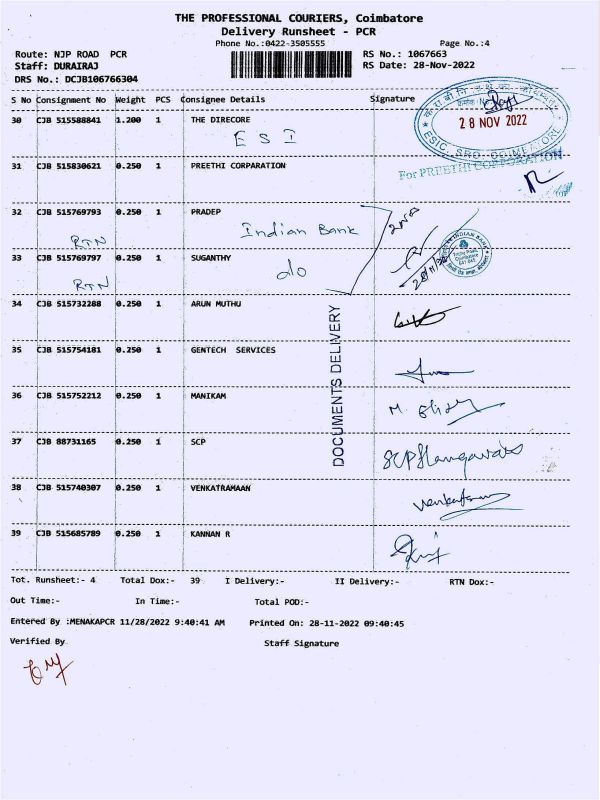 THE PROFESSIONAL COURIERS, Coimbatore
Delivery Runsheet - PCR
Phone No.:0422-3505555 Page No.:4
Route: NJP ROAD PCR RS No.: 1067663
Staff: DURAIRAJ RS Date: 28-Nov-2022
DRS No.: DCJB106766304
S No Consignment No Weight PCS Consignee Details Signature
28 NOV 2022
ESIC, SRO, COIMBATORE
30 CJB 515588841 1.200 1 THE DIRECORE
E S I
31 CJB 515830621 0.250 1 PREETHI CORPARATION
For PREETHI CORPORATION
32 CJB 515769793 0.250 1 PRADEP
RTN Indian Bank
33 CJB 515769797 0.250 1 SUGANTHY
RTN do
INDIAN BANK
34 CJB 515732288 0.250 1 ARUN MUTHU
DOCUMENTS DELIVERY
35 CJB 515754181 0.250 1 GENTECH SERVICES
36 CJB 515752212 0.250 1 MANIKAM
37 CJB 88731165 0.250 1 SCP
38 CJB 515740307 0.250 1 VENKATRAMAAN
39 CJB 515685789 0.250 1 KANNAN R
Tot. Runsheet:- 4 Total Dox:- 39 I Delivery:- II Delivery:- RTN Dox:-
Out Time:- In Time:- Total POD:-
Entered By :MENAKAPCR 11/28/2022 9:40:41 AM Printed On: 28-11-2022 09:40:45
Verified By Staff Signature